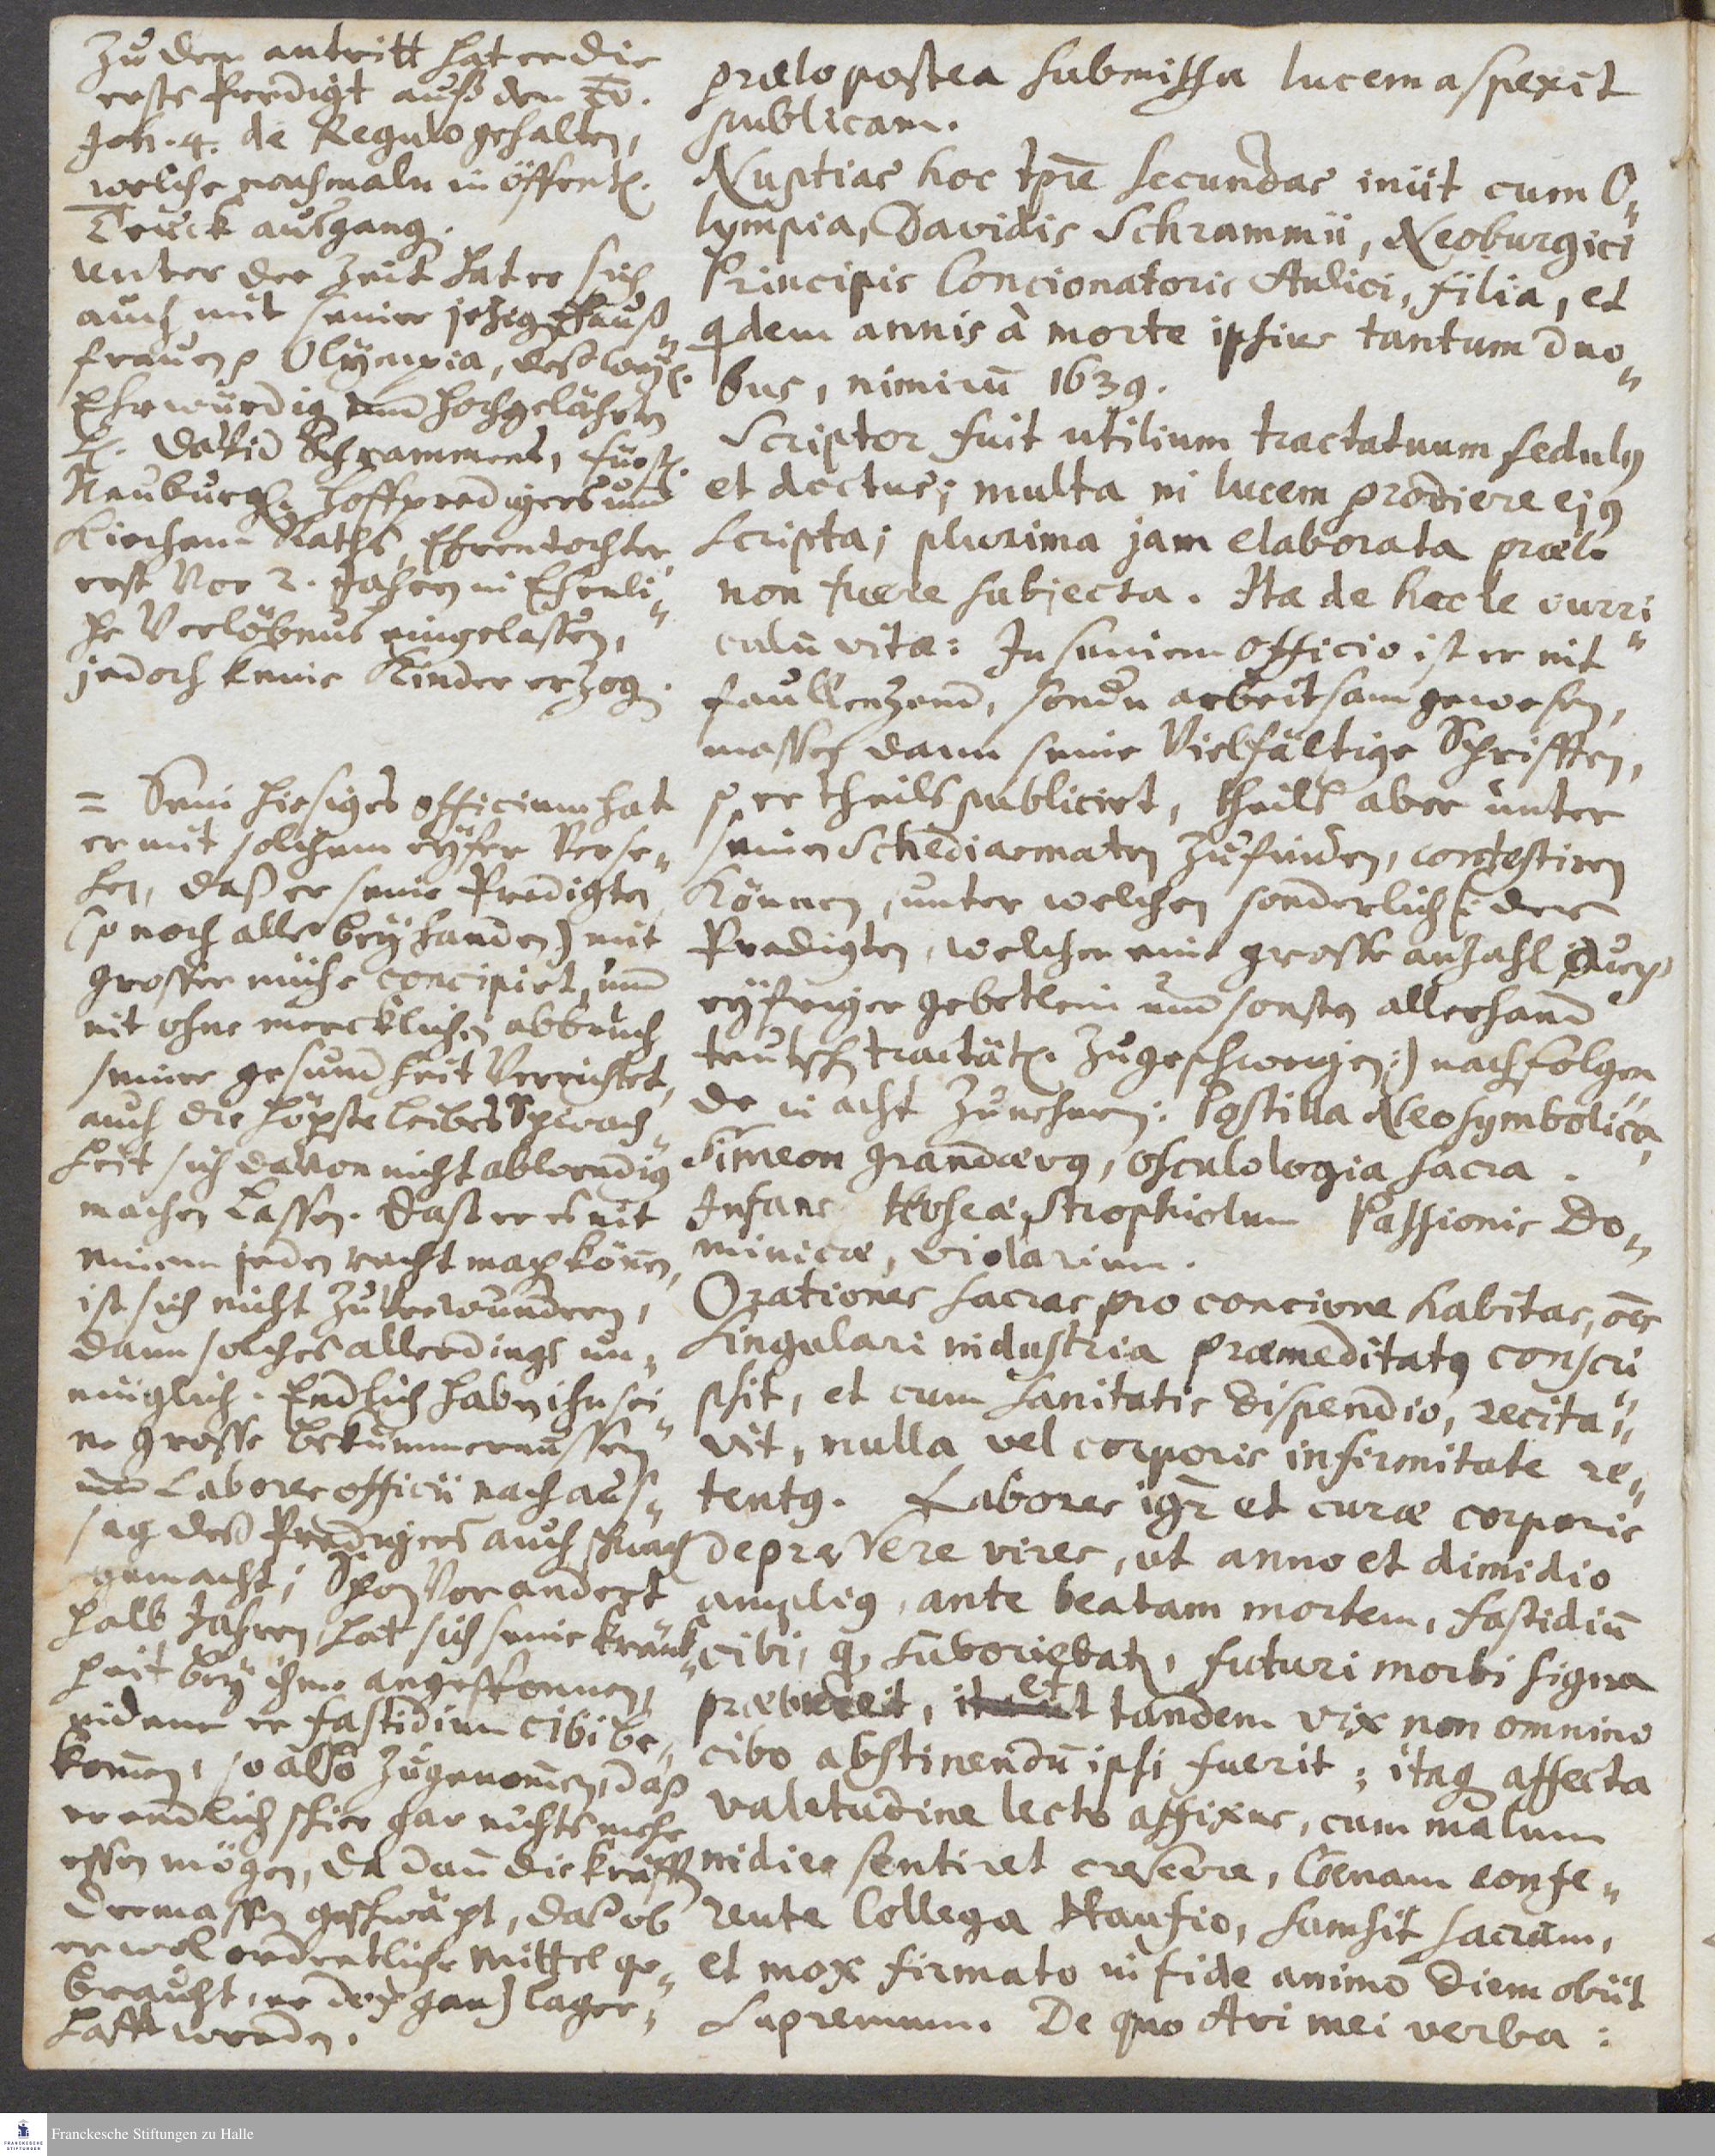 Zu dem antritt hat er die
erste Predigt auß dem Ev.
Joh. 4. de Regulo gehalten,
welche nachmaln in öffentl.
Truck außgang.
Unter der Zeit hat er sich
auch mit seiner jetzig Hauß„
frauen Olympia, deß weyl.
Ehrwürdig und hochgelährten
H. David Schrammens, fürstl.
Neuburg. Hoffpredigers und
Kirchen Raths, Ehrentochter,
erst Vor 2. Jahren in Eheli„
che Verlöbnus eingelassen,
jedoch keine Kinder erzog.
= Sein hiesiges officium hat
er mit solchem eyfer Verse„
hen, daß er seine Predigten
(so noch alle beyhanden) mit
grosser mühe concipirt, und
nit ohne mercklichen abbruch
seiner gesundheit Verrichtet,
auch die höchste leibes Schwach„
heit sich davon nicht abwendig
machen lassen. Daß er es nit
einem jeden recht machen können,
ist sich nicht zuverwundern,
dann solches allerdings un„
müglich. Endlich haben ihn sei„
ne grosse bekümmernussen
und Labores officii nach auß„
sag deß Predigers auch schwach
gemacht; Schon Vor andert
halb Jahren, hat sich seine kranck„
heit bey ihme angesponnen,
indeme er fastidium cibi be„
kommen, so also zugenommen, daß
er endlich schier gar nichts mehr
essen mögen, da dann die kräfften
dermassen geschwächt, daß ob
er wol ordentliche Mittel ge„
braucht, er doch gantz lager„
hafft worden.
prælo postea submissa lucem aspexit
publicam.
Nuptias hoc tp̄re secundas iniit cum O„
lympia, Davidis Schrammii, Neoburgici
Principis Concionatoris Aulici, filia, et
qdem annis à morte ipsius tantum duo„
bus, nimirū 1639.
Scriptor fuit utilium tractatuum sedulꝰ
et doctus; multa in lucem prodiere ejꝰ
scripta; plurima jam elaborata prælo
non fuere subjecta. Ita de hoc le curri„
culū vitæ: In seinem officio ist er nit
faullenzend, sondern arbeitsam gewesen,
massen dann seine Vielfältige Schrifften,
so er theils publicirt, theils aber unter
seinen Schediasmaten zufinden, contestiren
können, unter welchen sonderlich (: der
Predigten, welcher eine grosse anzahl, auch
eyferiger gebetlein und sonsten allerhand
teutsch tractätl. zugeschweigen:) nachfolgen„
de in acht zunehmen: Postilla Neosymbolica,
Simeon grandævꝰ, osculologia sacra.
Infans Hoseæ, Strophiolum Passionis Do„
minicæ, Violarium.
Orationes sacras pro concione habitas, oēs
singulari industria præmeditatꝰ conscri„
psit, et cum sanitatis dispendio, recita„
vit, nulla vel corporis infirmitate re„
tentꝰ. Labores igr̄ et curæ corporis
depressere vires, ut anno et dimidio
ampliꝰ, ante beatam mortem, fastidiū
cibi, q suboriebatr, futuri morbi signa
præbuerit, et tandem vix non omnino
cibo abstinendū ipsi fuerit; itaq affecta
valetudine lecto affixus, cum malum
indies sentiret crescere, Cœnam confe„
rente Collega Haufio, sumsit sacram,
et mox firmato in fide animo diem obiit
supremum. De quo Avi mei verba:
Franckesche Stiftungen zu Halle